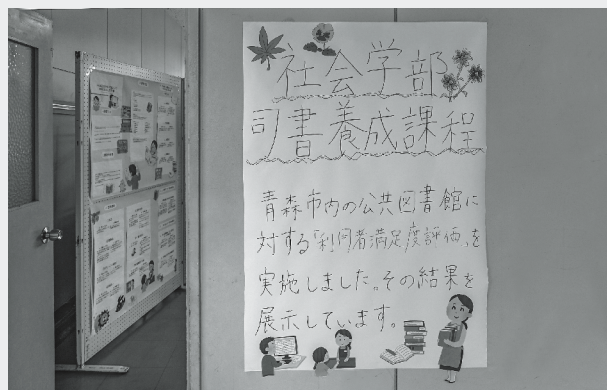 社会学部
司書養成課程
青森市内の公共図書館に
対する「利用者満足度評価」を
実施しました。その結果を
展示しています。